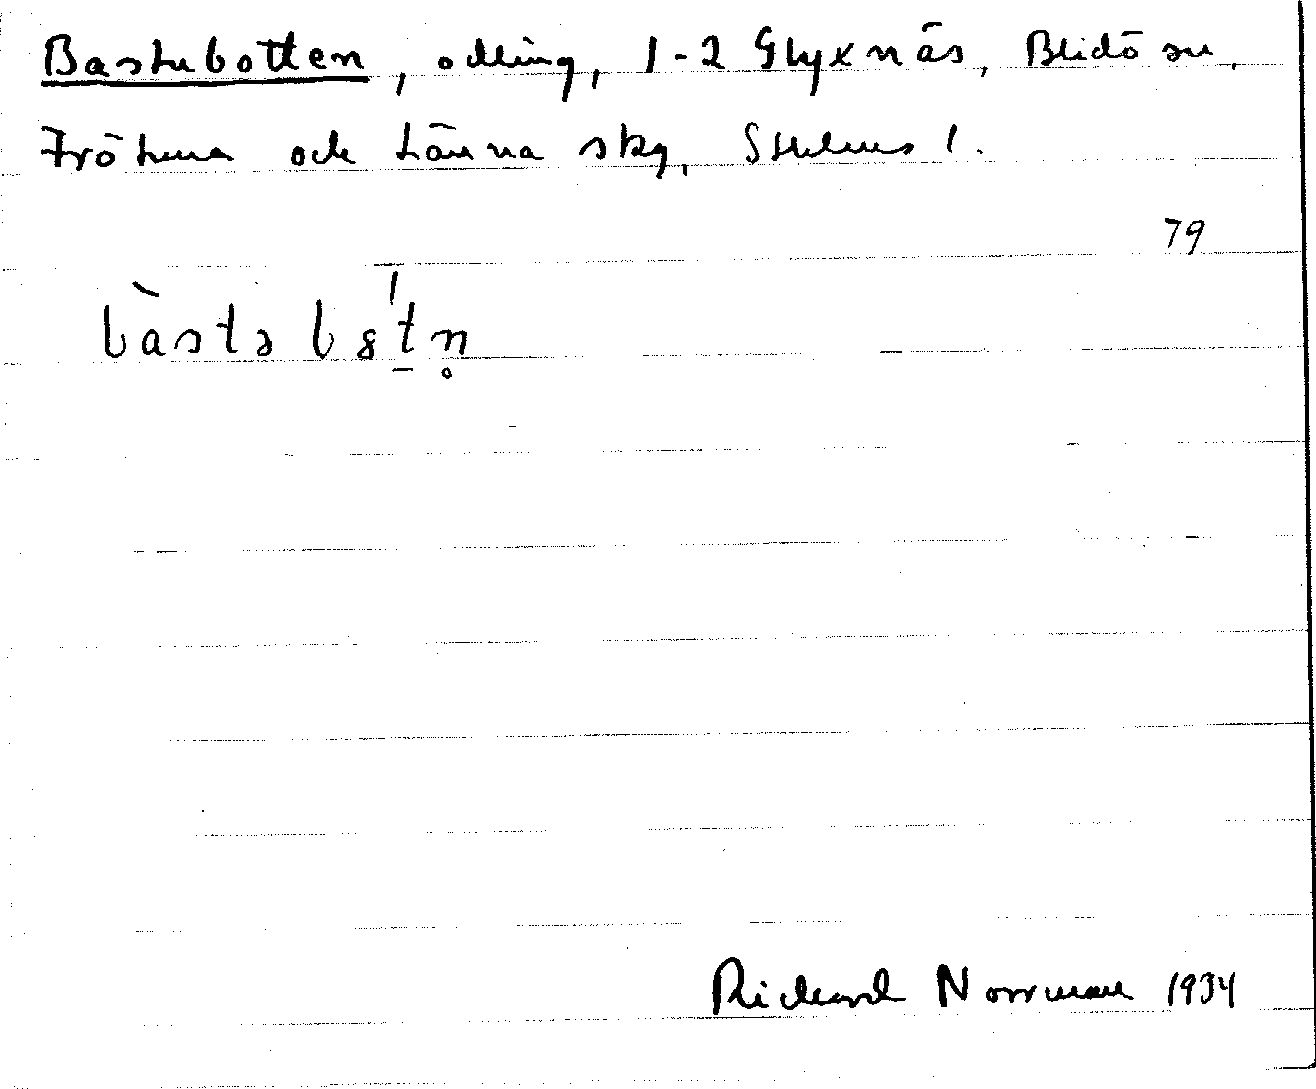 Bastubotten, odling, 1-2 Glyxnäs, Blidö sn,
Frötuna och Länna skg, Sthlms l.
79
bàstə bȣt́n̥
Rickard Norrman 1934